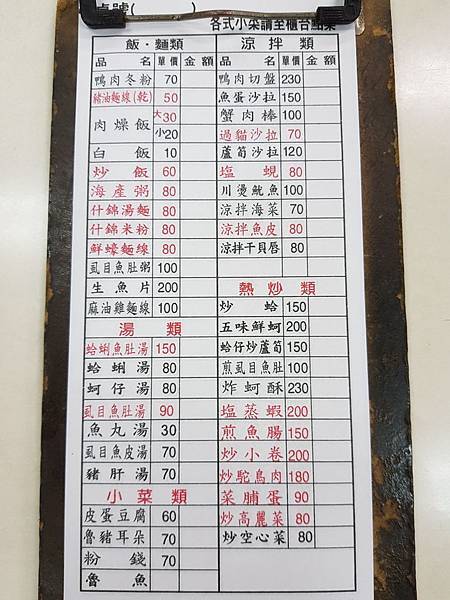 桌號(          )
各式小菜請至櫃台點菜
飯·麵類
品名 單價 金額
鴨肉冬粉 70
豬油麵線(乾) 50
肉燥飯 大30 小20
白飯 10
炒飯 60
海產粥 80
什錦湯麵 80
什錦米粉 80
鮮蠔麵線 80
虱目魚肚粥 100
生魚片 200
麻油雞麵線 100
湯類
蛤蜊魚肚湯 150
蛤蜊湯 80
蚵仔湯 80
虱目魚肚湯 90
魚丸湯 30
虱目魚皮湯 70
豬肝湯 70
小菜類
皮蛋豆腐 60
魯豬耳朵 70
粉錢 70
魯魚
涼拌類
品名 單價 金額
鴨肉切盤 230
魚蛋沙拉 150
蟹肉棒 100
過貓沙拉 70
蘆筍沙拉 120
塩蜆 80
川燙魷魚 100
涼拌海菜 70
涼拌魚皮 80
涼拌干貝唇 80
熱炒類
炒蛤 150
五味鮮蚵 200
蛤仔炒蘆筍 150
煎虱目魚肚 100
炸蚵酥 230
塩蒸蝦 200
煎魚腸 150
炒小卷 200
炒駝鳥肉 180
菜脯蛋 90
炒高麗菜 80
炒空心菜 80